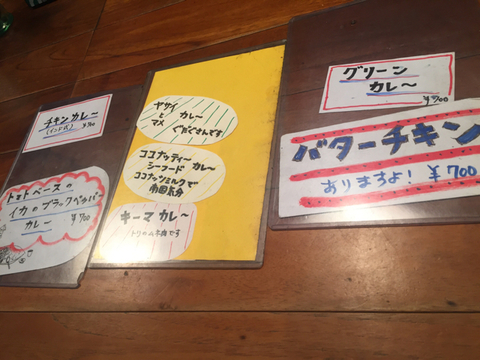 チキンカレー
(インド式) ¥700
トマトベースの
イカのブラックペパー
カレー ¥700
ヤサイ
と カレー
マメ ぐだくさんです
ココナッティー
シーフード カレー
ココナッツミルクで
南国気分
キーマ カレ〜
トリのム本肉です
グリーン
カレ〜
¥700
バターチキン
ありますよ! ¥700